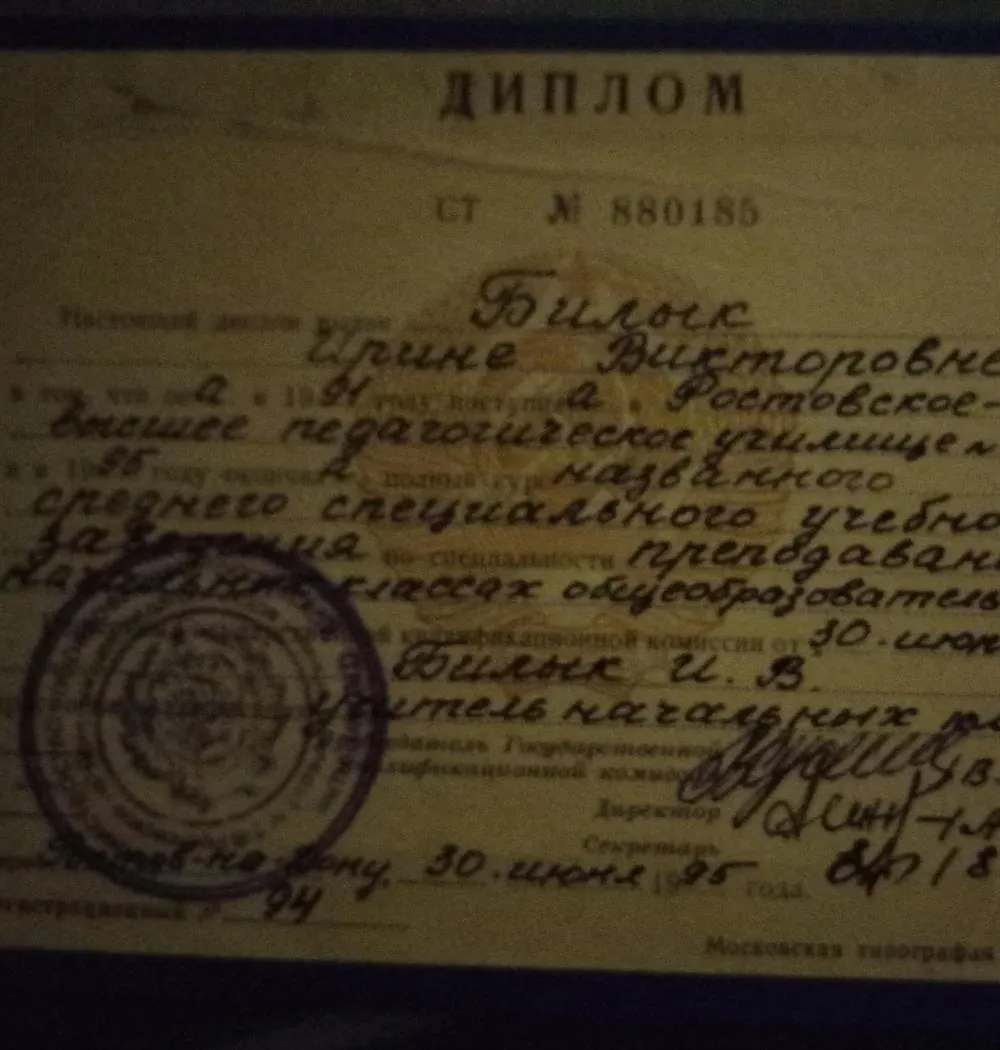 ДИПЛОМ
СТ № 880185
Настоящий диплом выдан Билык
Ирине Викторовне
в том, что она в 1991 году поступила в Ростовское
высшее педагогическое училище
и в 1995 году окончила полный курс названного
среднего специального учебно
заведения по специальности преподаван
классах общеобразователь
квалификационной комиссии от 30 июн
Билык И. В.
учитель начальных кл
Председатель Государственной
квалификационной комиссии
Директор
Секретарь
Ростов-на-Дону, 30 июня 1995 года.
регистрационный № 94
Московская типография